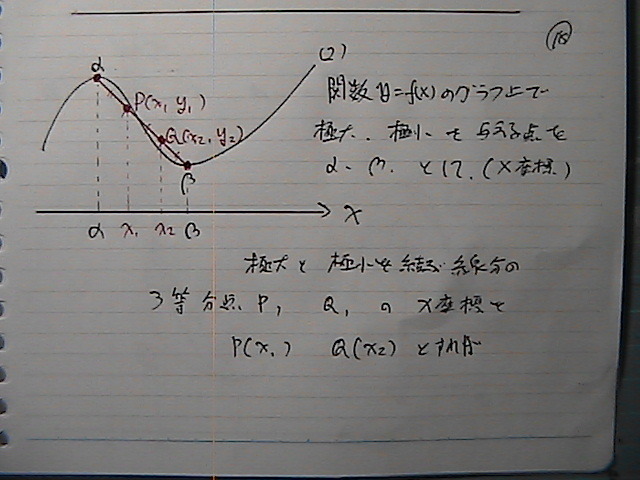 (18)
α
(2)
P(x₁ y₁)
Q(x₂, y₂)
β
α x₁ x₂ β
x
関数 y=f(x) のグラフ上で
極大、極小を与える点を
α、β、として、(x座標)
極大と極小を結ぶ線分の
3等分点、P, Q, の x座標を
P(x₁) Q(x₂) とすれば